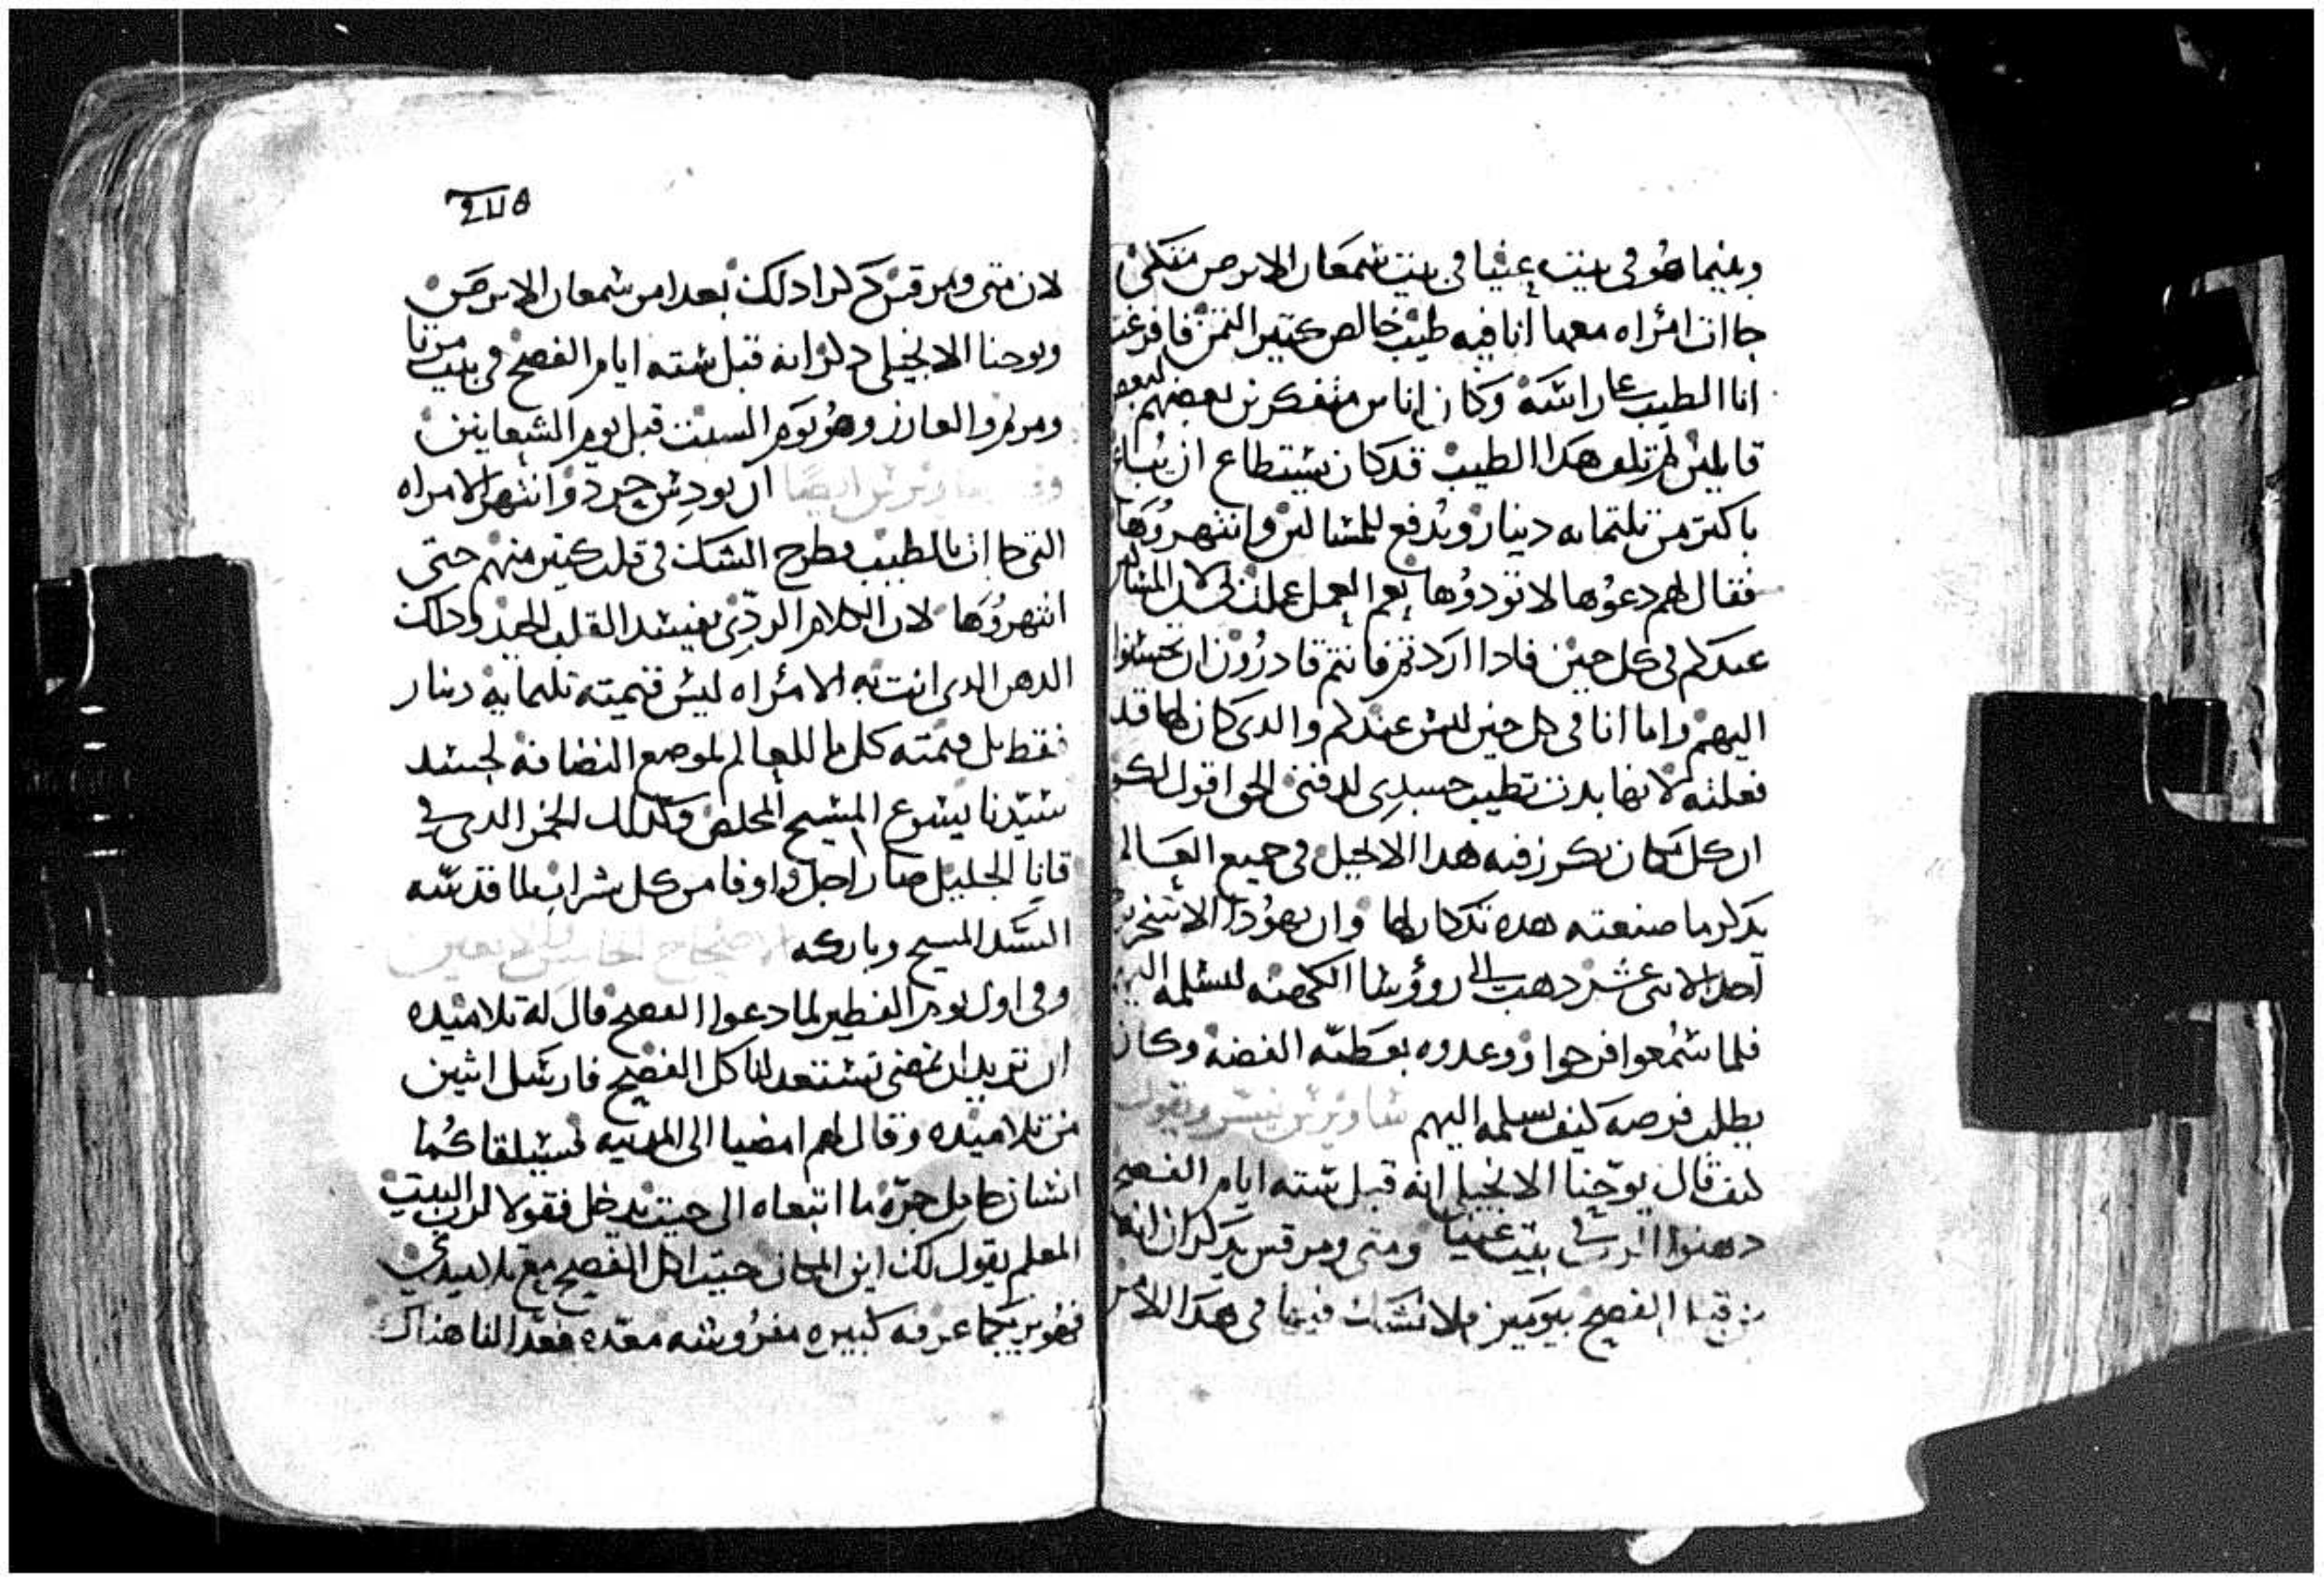 وبينما هو فى بيت عنيا فى بيت شمعان الابرص متكى
جاات امراه معها انا فيه طيب خالص كتير التمن فافرغت
انا الطيب عا راسه وكان اناس متفكرين بعضهم لبعض
قايلين لم تلف هدا الطيب قد كان يستطاع ان يباع
باكتر من تلتمايه دينار ويدفع للمساكين وانتهروها
فقال لهم دعوها لا تودوها نعم العمل عملت بى لان المساكين
عندكم فى كل حين فادا اردتم فانتم قادرون ان تحسنوا
اليهم واما انا فى كل حين ليس عندكم والدى كان لها قد
فعلته لانها بدت تطيب جسدى لدفنى الحق اقول لكم
ان كل مكان يكرز فيه هدا الانجيل فى جميع العالم
يدكر ما صنعته هده تدكار لها وان يهودا الاسخريوطى
احد الاتنى عشر دهب الى روؤسا الكهنه ليسلمه اليهم
فلما سمعوا فرحوا ووعدوه بعطيه الفضه وكان
يطلب فرصه كيف يسلمه اليهم ساويرس يفسر ويقول
كيف قال يوحنا الانجيلى انه قبل سته ايام الفصح
دهنوا الرب فى بيت عنيا ومتى ومرقس يدكران انه
من قبل الفصح بيومين فلا تشك فيها فى هدا الامر
٢٧٥
لان متى ومرقس دكرا دلك بعدا من شمعان الابرص
ويوحنا الانجيلى دكر انه قبل سته ايام الفصح فى بيت مرتا
ومريم والعازر وهو يوم السبت قبل يوم الشعانين
ايضًا ان يودس حرد وانتهر الامراه
التى جاات بالطيب وطرح الشك فى قلب كتير منهم حتى
انتهروها لان الكلام الردى يفسد القلب الجيد ودلك
الدهن الدى اتت به الامراه ليس قيمته تلتمايه دينار
فقط بل قيمته كل ما للعالم لموضع انضافته لجسد
سيدنا يسوع المسيح المخلص وكدلك الخمر الدى فى
قانا الجليل صار اجل واوفا من كل شراب لما قدسه
السيد المسيح وباركه الاصحاح الخامس والاربعين
وفى اول يوم الفطير لما دعوا الفصح قال له تلاميده
اين تريد ان نمضى نستعد لناكل الفصح فارسل اتنين
من تلاميده وقال لهم امضيا الى المدينه فسيلقاكما
انسان حامل جرة ما اتبعاه الى حيت يدخل فقولا لرب البيت
المعلم يقول لك اين المكان حيت اكل الفصح مع تلاميدى
فهو يريكما غرفه كبيره مفروشه معده فعدا لنا هناك